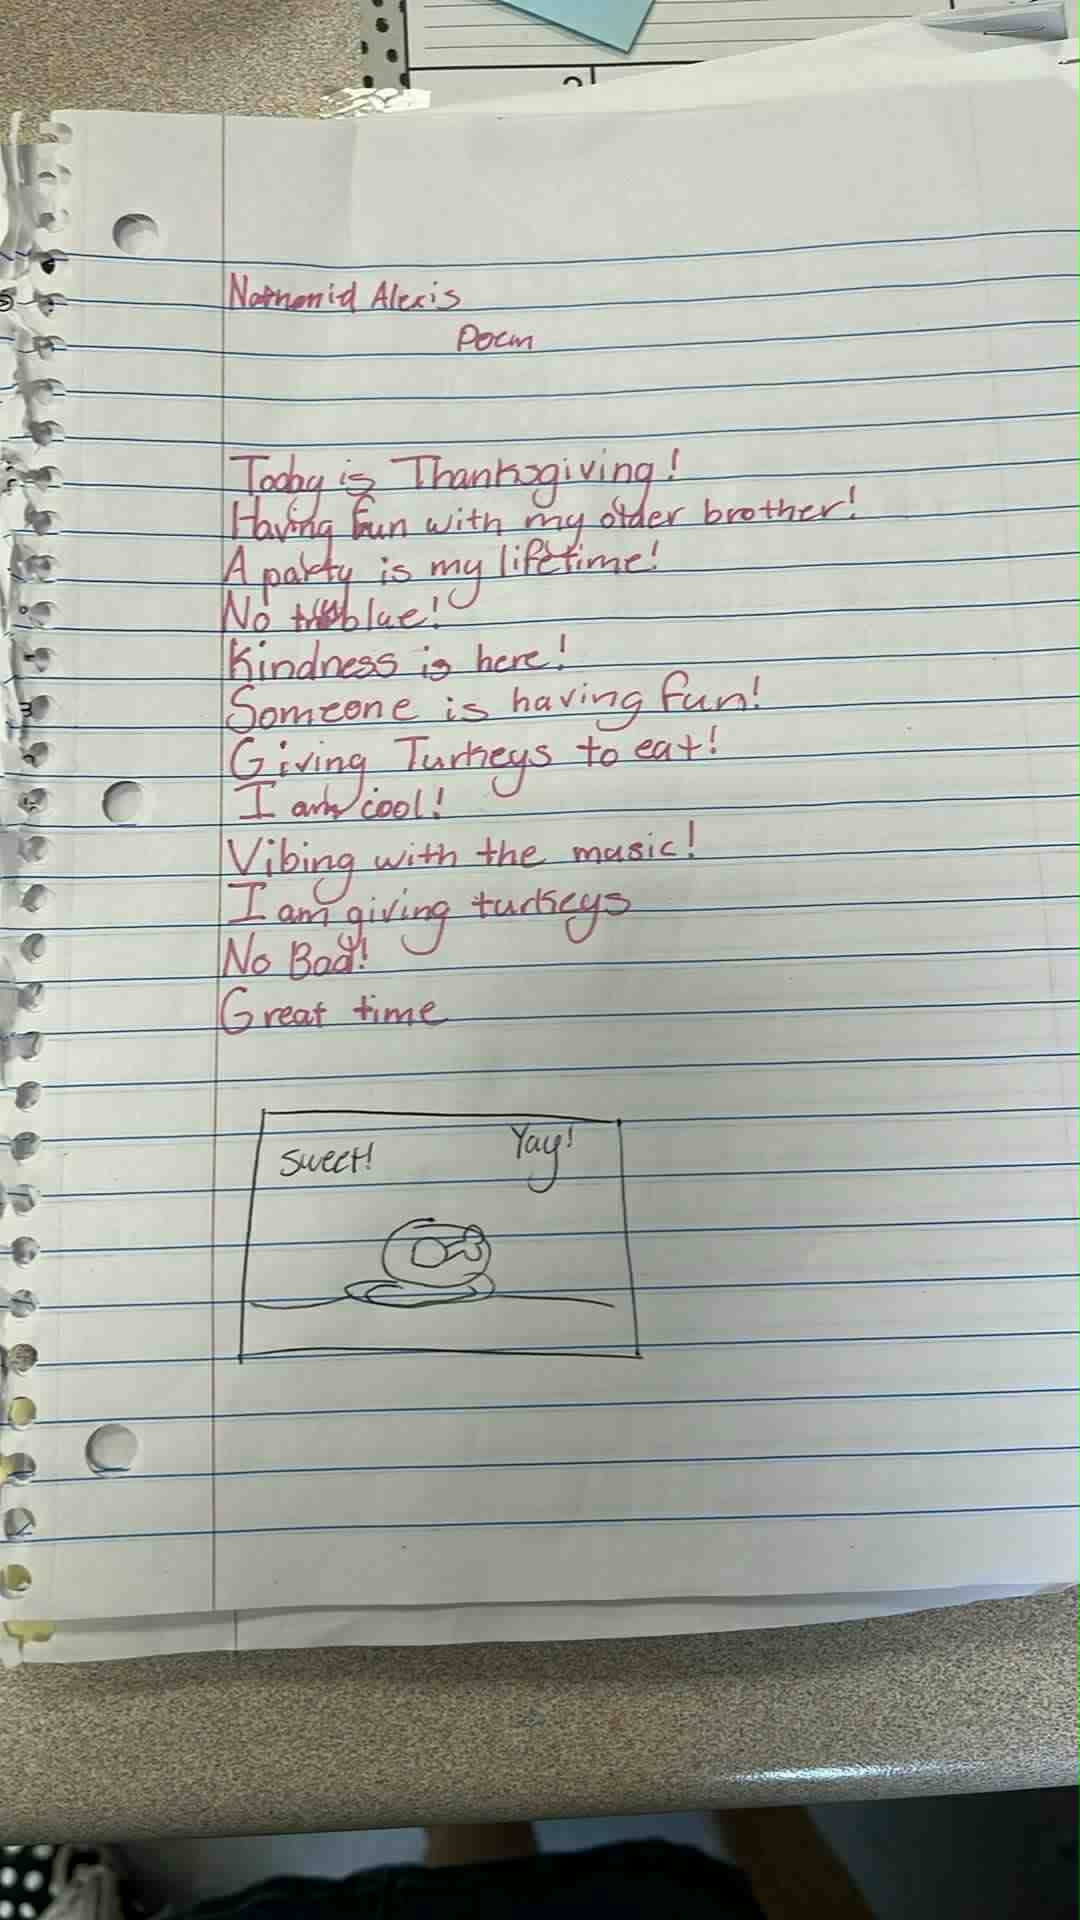 Nathanid Alexis
Poem
Today is Thanksgiving!
Having fun with my older brother!
A party is my lifetime!
No blue!
Kindness is here!
Someone is having fun!
Giving Turkeys to eat!
I am cool!
Vibing with the music!
I am giving turkeys
No Bad!
Great time
Sweet! Yay!